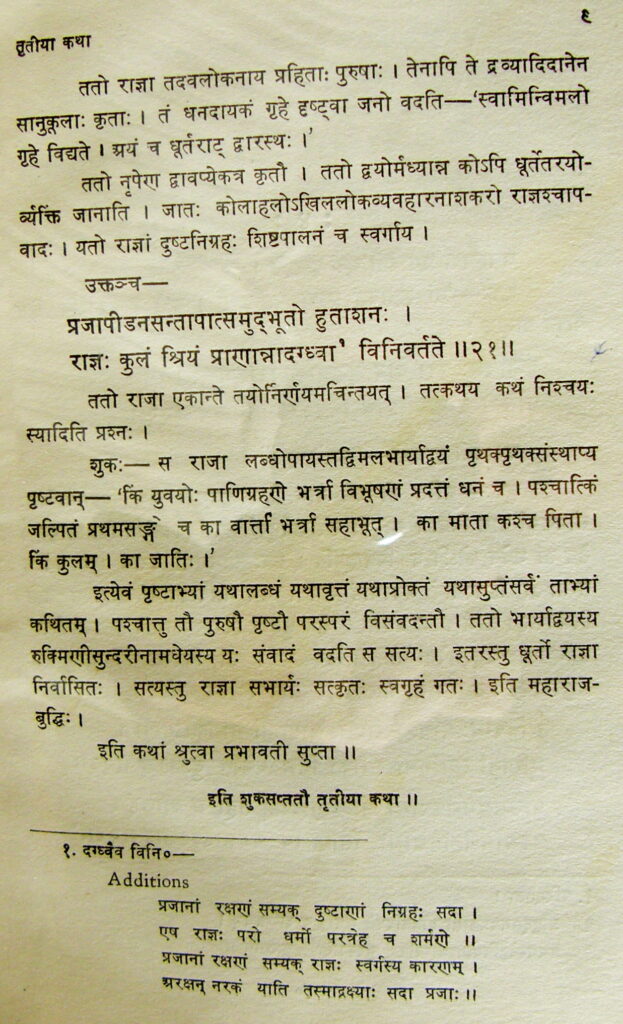 ९
तृतीया कथा
ततो राज्ञा तदवलोकनाय प्रहिताः पुरुषाः । तेनापि ते द्रव्यादिदानेन
सानुकूलाः कृताः । तं धनदायकं गृहे दृष्ट्वा जनो वदति—'स्वामिन्विमलो
गृहे विद्यते । अयं च धूर्तराट् द्वारस्थः ।'
ततो नृपेण द्वावप्येकत्र कृतौ । ततो द्वयोर्मध्यान्न कोऽपि धूर्तेतरयो-
र्व्यक्तिं जानाति । जातः कोलाहलोऽखिललोकव्यवहारनाशकरो राज्ञश्चाप-
वादः । यतो राज्ञां दुष्टनिग्रहः शिष्टपालनं च स्वर्गाय ।
उक्तञ्च—
प्रजापीडनसन्तापात्समुद्भूतो हुताशनः ।
राज्ञः कुलं श्रियं प्राणान्नादग्ध्वा१ विनिवर्तते ॥२१॥
ततो राजा एकान्ते तयोर्निर्णयमचिन्तयत् । तत्कथय कथं निश्चयः
स्यादिति प्रश्नः ।
शुकः— स राजा लब्धोपायस्तद्विमलभार्याद्वयं पृथक्पृथक्संस्थाप्य
पृष्टवान्— 'किं युवयोः पाणिग्रहणे भर्त्रा विभूषणं प्रदत्तं धनं च । पश्चात्किं
जल्पितं प्रथमसङ्गे च का वार्त्ता भर्त्रा सहाभूत् । का माता कश्च पिता ।
किं कुलम् । का जातिः ।'
इत्येवं पृष्टाभ्यां यथालब्धं यथावृत्तं यथाप्रोक्तं यथासुप्तंसर्वं ताभ्यां
कथितम् । पश्चात्तु तौ पुरुषौ पृष्टौ परस्परं विसंवदन्तौ । ततो भार्याद्वयस्य
रुक्मिणीसुन्दरीनामधेयस्य यः संवादं वदति स सत्यः । इतरस्तु धूर्तो राज्ञा
निर्वासितः । सत्यस्तु राज्ञा सभार्यः सत्कृतः स्वगृहं गतः । इति महाराज-
बुद्धिः ।
इति कथां श्रुत्वा प्रभावती सुप्ता ॥
इति शुकसप्ततौ तृतीया कथा ॥
१. दग्ध्वैव विनि०—
Additions
प्रजानां रक्षणं सम्यक् दुष्टाणां निग्रहः सदा ।
एष राज्ञः परो धर्मो परत्रेह च शर्मणे ॥
प्रजानां रक्षणं सम्यक् राज्ञः स्वर्गस्य कारणम् ।
अरक्षन् नरकं याति तस्माद्रक्ष्याः सदा प्रजाः ॥